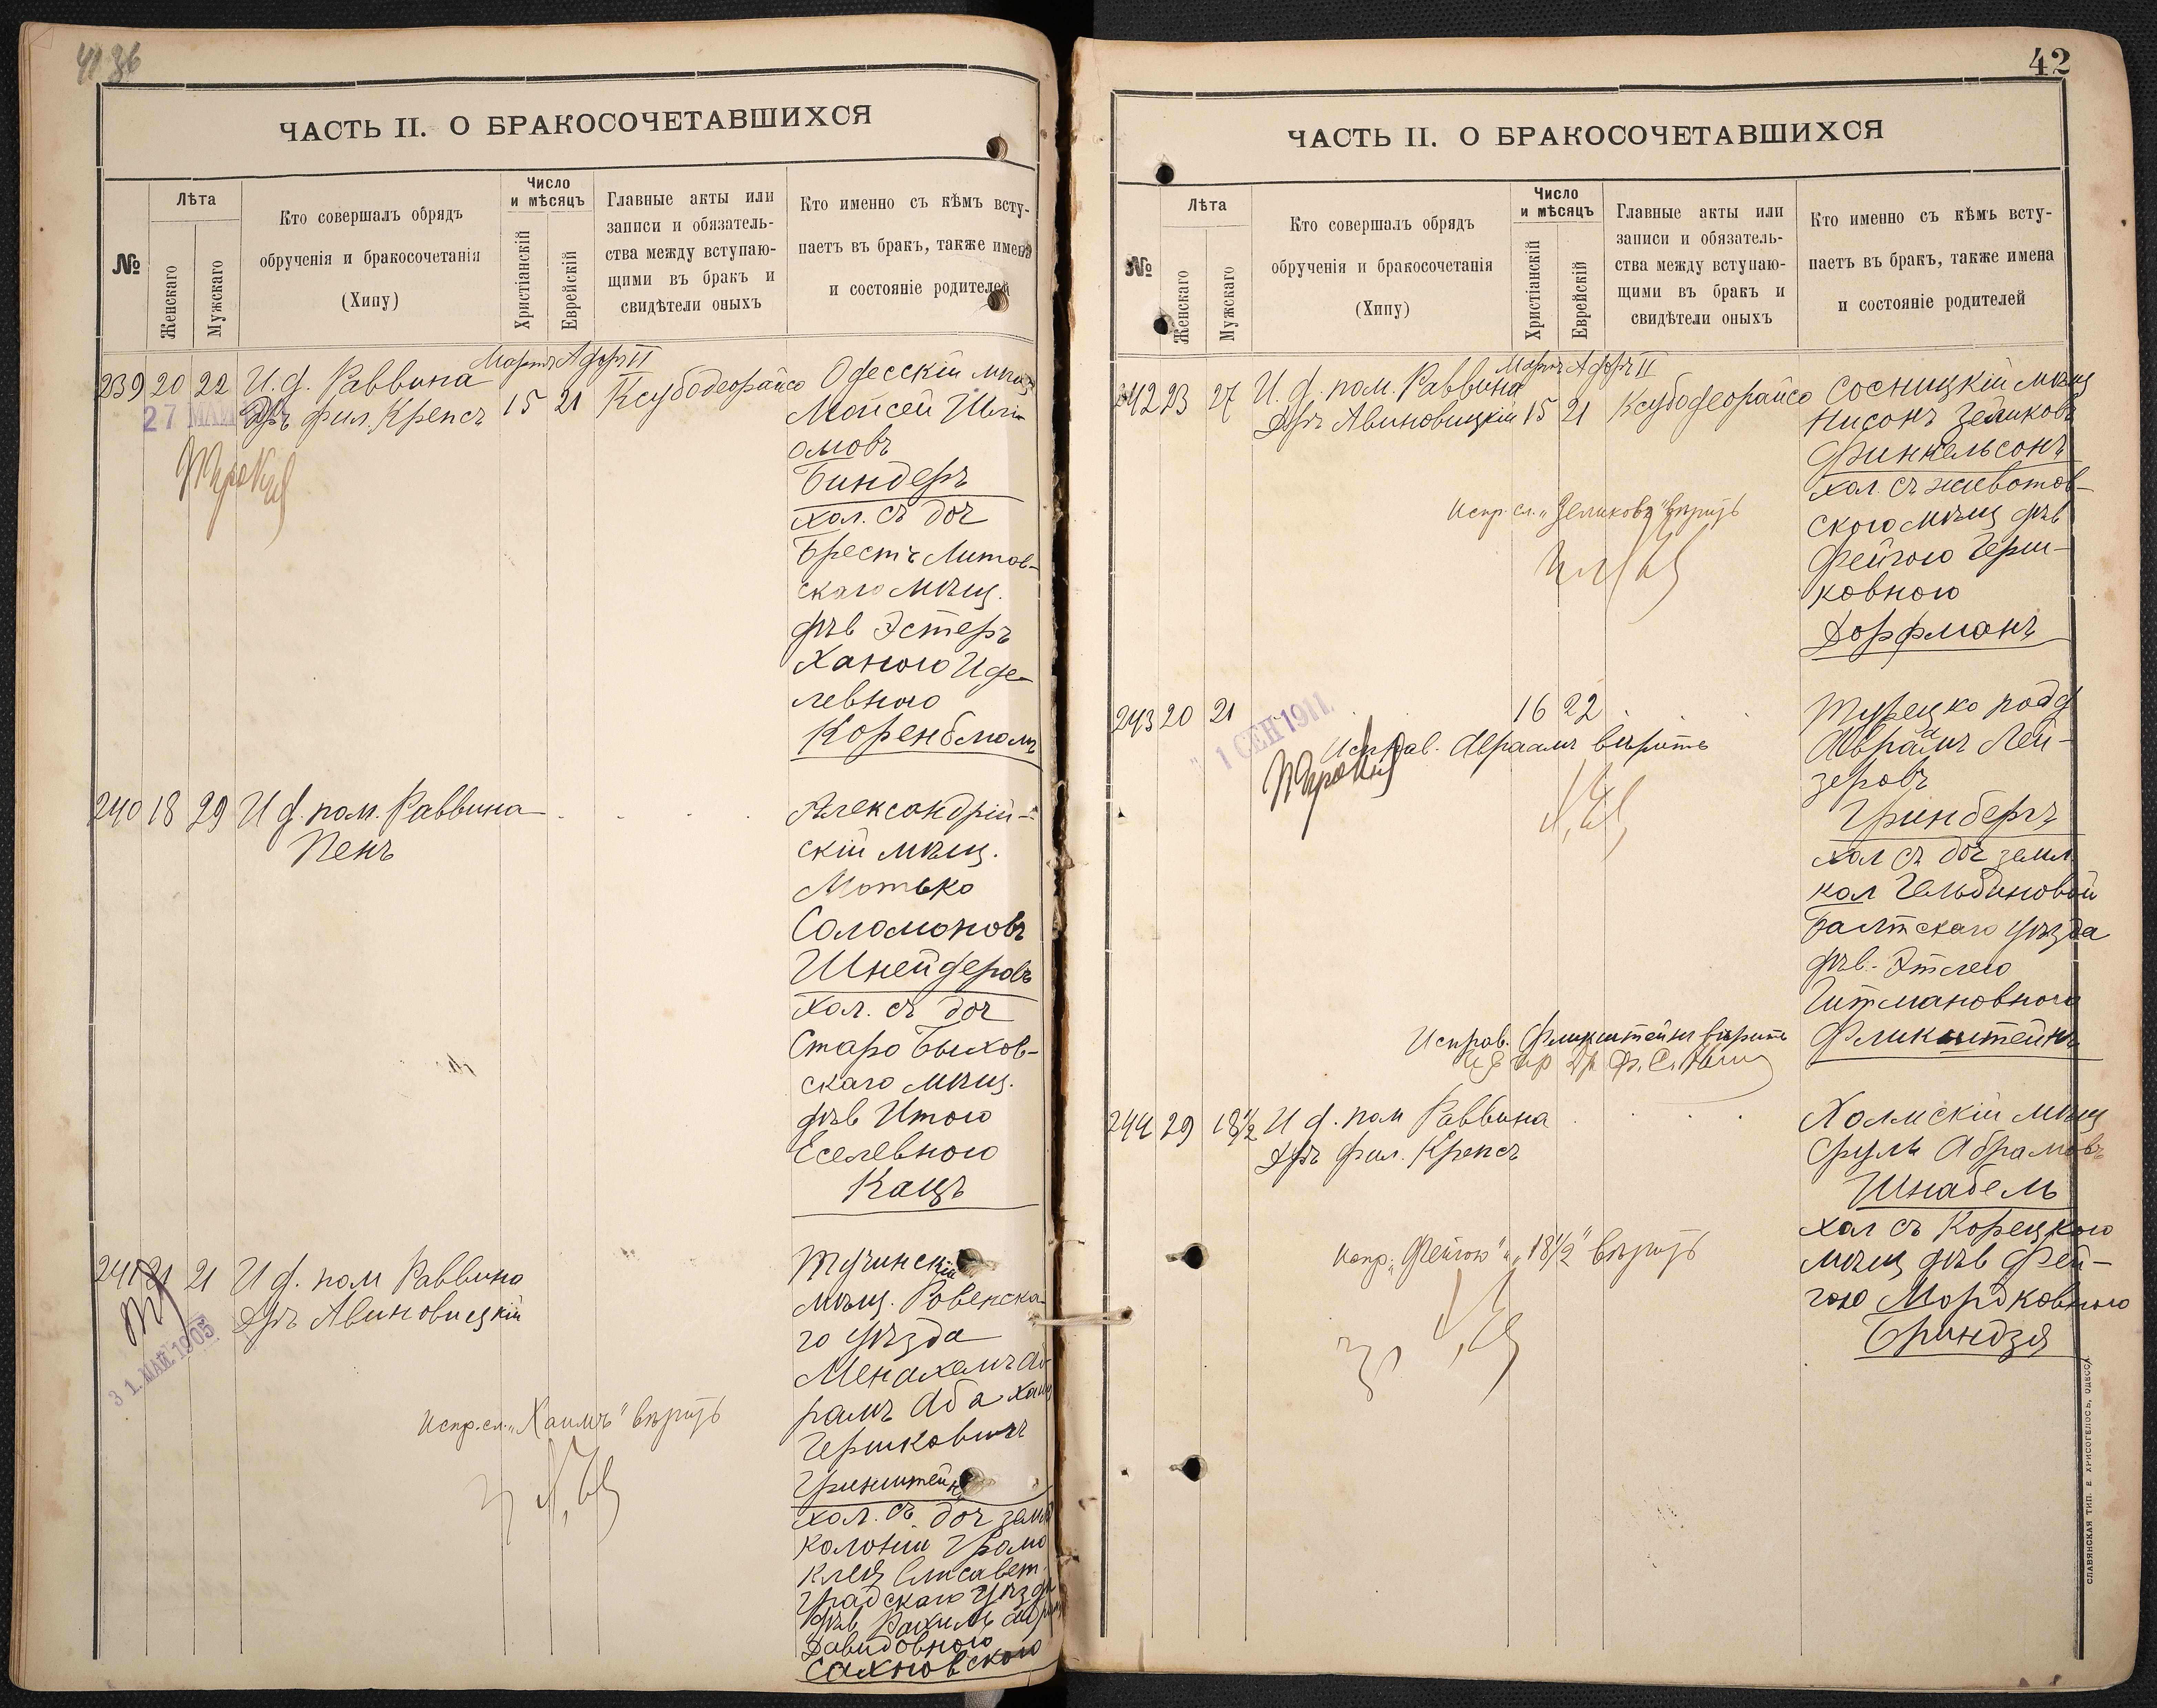 41 36
ЧАСТЬ II. О БРАКОСОЧЕТАВШИХСЯ
№
Лѣта
Женскаго
Мужскаго
Кто совершалъ обрядъ
обрученія и бракосочетанія
(Хипу)
Число
и мѣсяцъ
Христіанскій
Еврейскій
Главные акты или
записи и обязатель-
ства между вступаю-
щими въ бракъ и
свидѣтели оныхъ
Кто именно съ кѣмъ всту-
паетъ въ бракъ, также имена
и состояніе родителей
Мартъ Адаръ II
239 20 22 И. д. Раввина
Дръ фил. Крепсъ 15 21 Ксубодеорайсо
27 МАЙ
Одесскій мѣщ
Мойсей Шлі-
омовъ
Биндеръ
хол. съ доч
Брестъ Литов-
скаго мѣщ.
дѣв Эстеръ
Ханою Иде-
левною
Коренблюмъ
240 18 29 И д. пом. Раввина
Пенъ
Александрій-
скій мѣщ.
Мотько
Соломоновъ
Шнейдеровъ
хол. съ доч
Старо Быхов-
скаго мѣщ.
дѣв Итою
Еселевною
Кацъ
241 21 21 И д. пом Раввина
Дръ Авиновицкій
31. МАЙ 1905
Тучинскій
мѣщ. Ровенска-
го уѣзда
Менахемъ Аб-
рамъ Аба Хаим
Гершковичъ
Гринштейнъ
хол. съ доч земл
колоніи Грамо
клея Елисавет
градскаго уѣзда
дѣв Рахиль
Давидовною
Сахновскою
Испр. сл. „Хаимъ" вѣрить
42
ЧАСТЬ II. О БРАКОСОЧЕТАВШИХСЯ
№
Лѣта
Женскаго
Мужскаго
Кто совершалъ обрядъ
обрученія и бракосочетанія
(Хипу)
Число
и мѣсяцъ
Христіанскій
Еврейскій
Главные акты или
записи и обязатель-
ства между вступаю-
щими въ бракъ и
свидѣтели оныхъ
Кто именно съ кѣмъ всту-
паетъ въ бракъ, также имена
и состояніе родителей
Мартъ Адаръ II
242 23 27 И. д. пом. Раввина
Дръ Авиновицкій 15 21 Ксубодеорайсо
Сосницкій мѣщ
Нисонъ Зеликовъ
Финкельсонъ
хол. съ животов-
скаго мѣщ дѣв
Фейгою Герш-
ковною
Дорфманъ
Испр. сл. „Зеликовъ" вѣрить
243 20 21 16 22
1 СЕН 1911
Исправ. Авраамъ вѣрить
Турецко подд
Авраамъ Лей-
зеровъ
Гринбергъ
хол съ доч земл
кол Гельбиновой
Балтскаго уѣзда
дѣв. Этлею
Гитмановною
Фликштейнъ
Исправ. Фликштейнъ вѣрить
244 29 18 1/2 И д. пом Раввина
Дръ фил. Крепсъ
Холмскій мѣщ
Сруль Абрамовъ
Шнабель
хол съ Корецкаго
мѣщ дѣв Фей-
гою Мордковною
Бриндзя
Испр. „Фейгою" и „18 1/2" вѣрить
СЛАВЯНСКАЯ ТИП. Е. ХРИСОГЕЛОСЪ, ОДЕССА